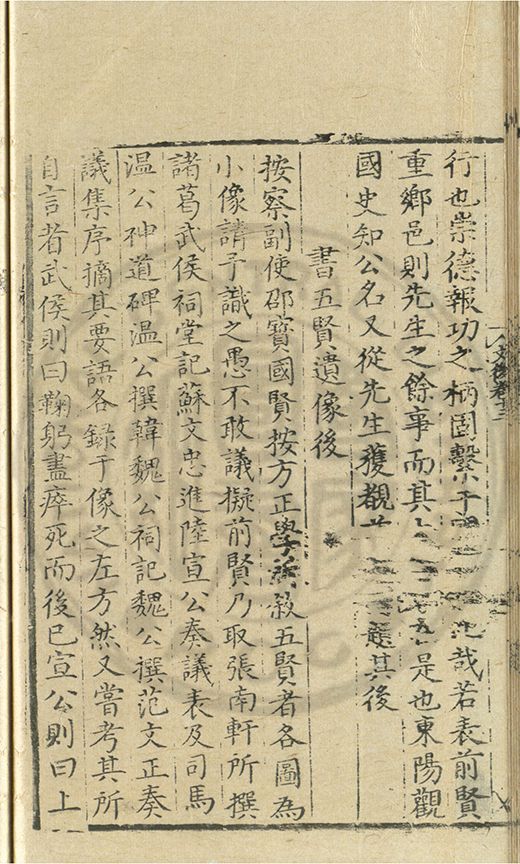 行也崇德報功之柄固繫于哉若表前賢
重鄉邑則先生之餘事而其是也東陽觀
國史知公名又從先生獲覩題其後
書五賢遺像後
按察副使邵寶國賢按方正學所敘五賢者各圖為
小像請予識之愚不敢議擬前賢乃取張南軒所撰
諸葛武侯祠堂記蘇文忠進陸宣公奏議表及司馬
温公神道碑温公撰韓魏公祠記魏公撰范文正奏
議集序摘其要語各録于像之左方然又嘗考其所
自言者武侯則曰鞠躬盡瘁死而後已宣公則曰上
文後卷十三